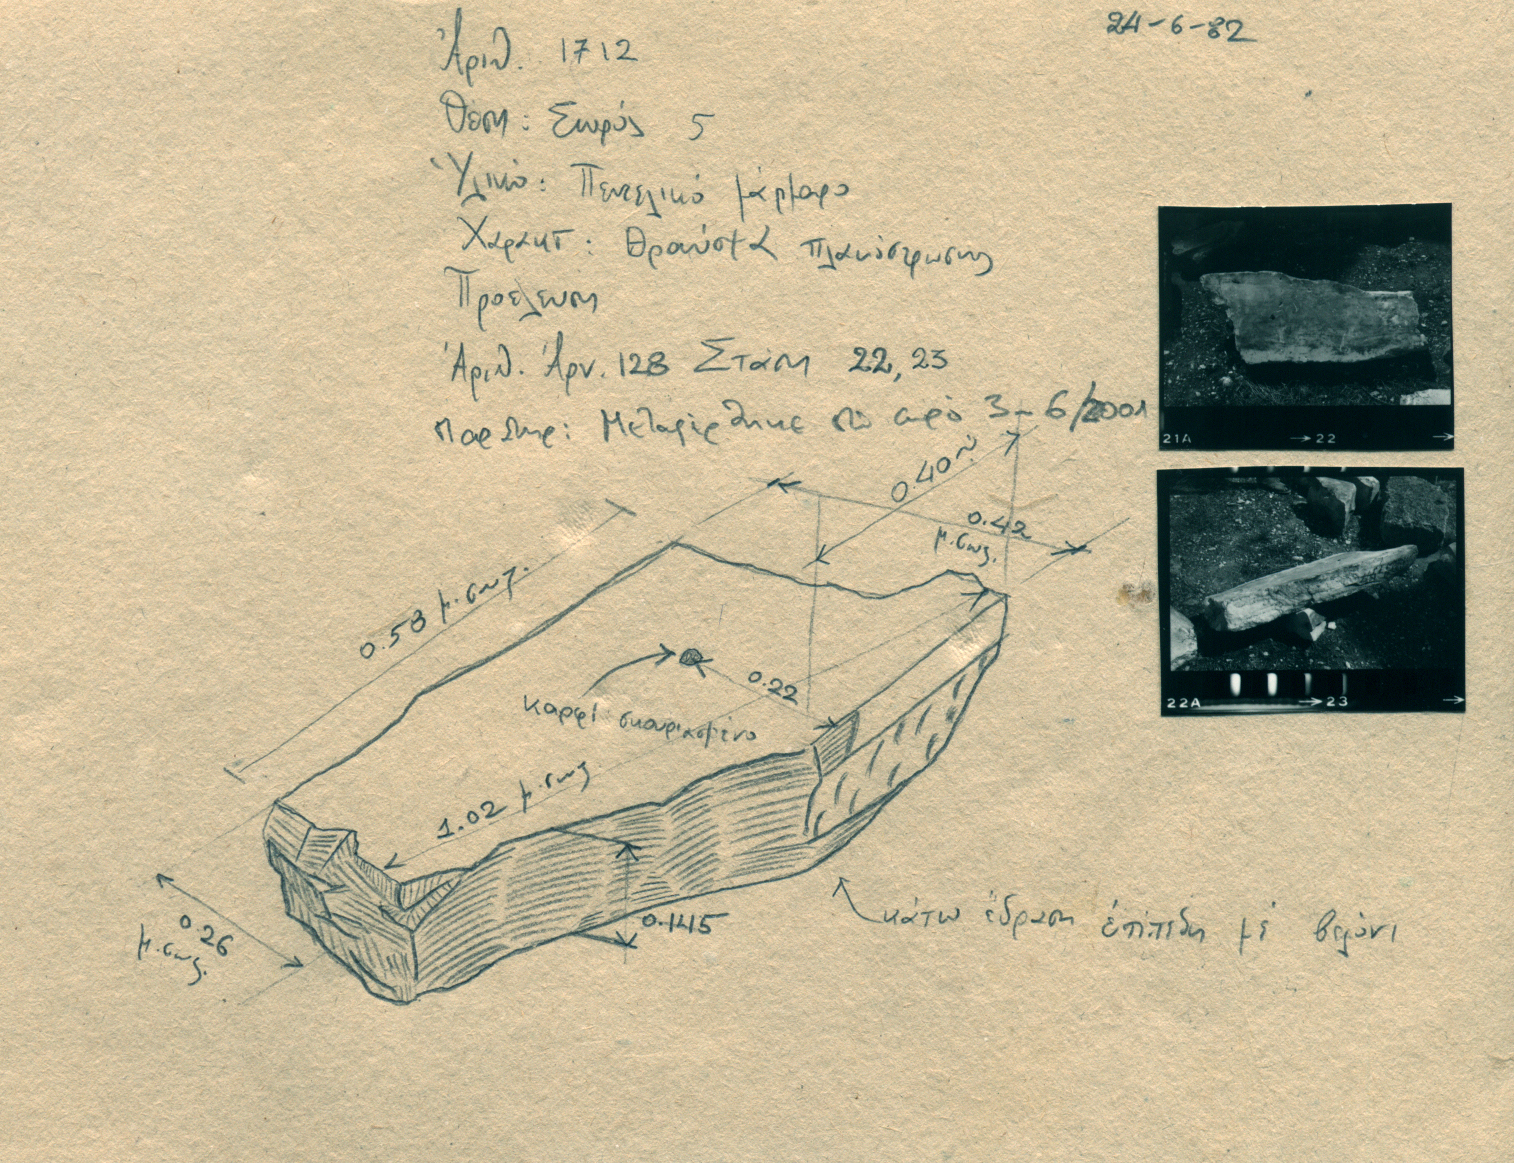 24-6-82
Ἀριθ. 1712
Θέση: Σωρός 5
Ὑλικό: Πεντελικό μάρμαρο
Χαρακτ: Θραύσμα πλακόστρωσης
Προέλευση
Ἀριθ. Ἀρν. 128 Στάση 22, 23
Παρατηρ: Μεταφέρθηκε στο σωρό 3-6/2001
0.40
0.42
μ.σωζ.
0.58 μ.σωζ.
0.22
καρφί σκουριασμένο
1.02 μ.σωζ
0.26
μ.σωζ.
0.145
κάτω ἕδραση ἐπίπεδη μέ βελόνι
21A → 22 →
22A → 23 →